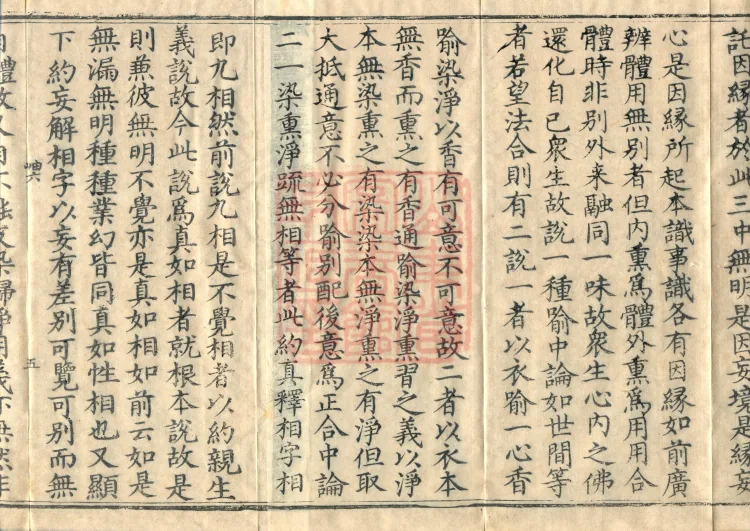 託因緣者於此三中無明是因妄境是緣妄
心是因緣所起本識事識各有因緣如前廣
辨體用無別者但內熏爲體外熏爲用用合
體時非別外来融同一味故衆生心内之佛
還化自己衆生故說一種喻中論如世間等
者若望法合則有二說一者以衣喻一心香
喻染淨以香有可意不可意故二者以衣本
無香而熏之有香通喻染淨熏習之義以淨
本無染熏之有染染本無淨熏之有淨但取
大抵通意不必分喻別配後意爲正合中論
二一染熏淨䟽無相等者此約真釋相字相
即九相然前說九相是不覺相者以約親生
義說故今此說爲真如相者就根本說故是
則兼彼無明不覺亦是真如相如前云如是
無漏無明種種業幻皆同真如性相也又顯
下約妄解相字以妄有差別可覽可別而無
岫六
五